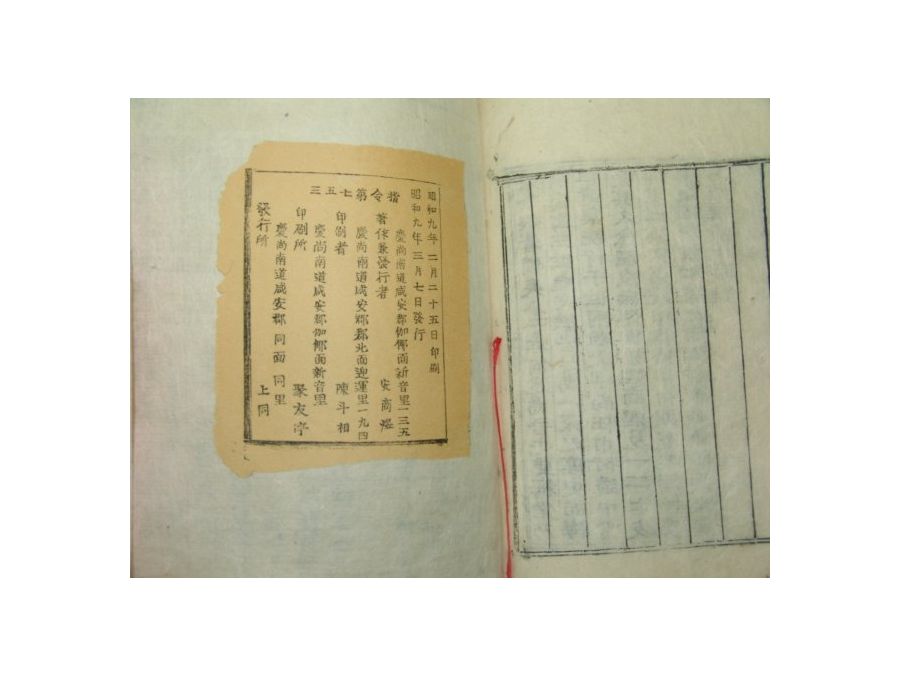 昭和九年 二月二十五日印刷
昭和九年 三月七日發行
指令第七五三
慶尚南道咸安郡伽倻面新音里一三五
著作兼發行者 安商
慶尚南道咸安郡郡北面迎運里一九四
印刷者 陳斗相
慶尚南道咸安郡伽倻面新音里
印刷所 聚友亭
慶尚南道咸安郡同面同里
發行所 上同